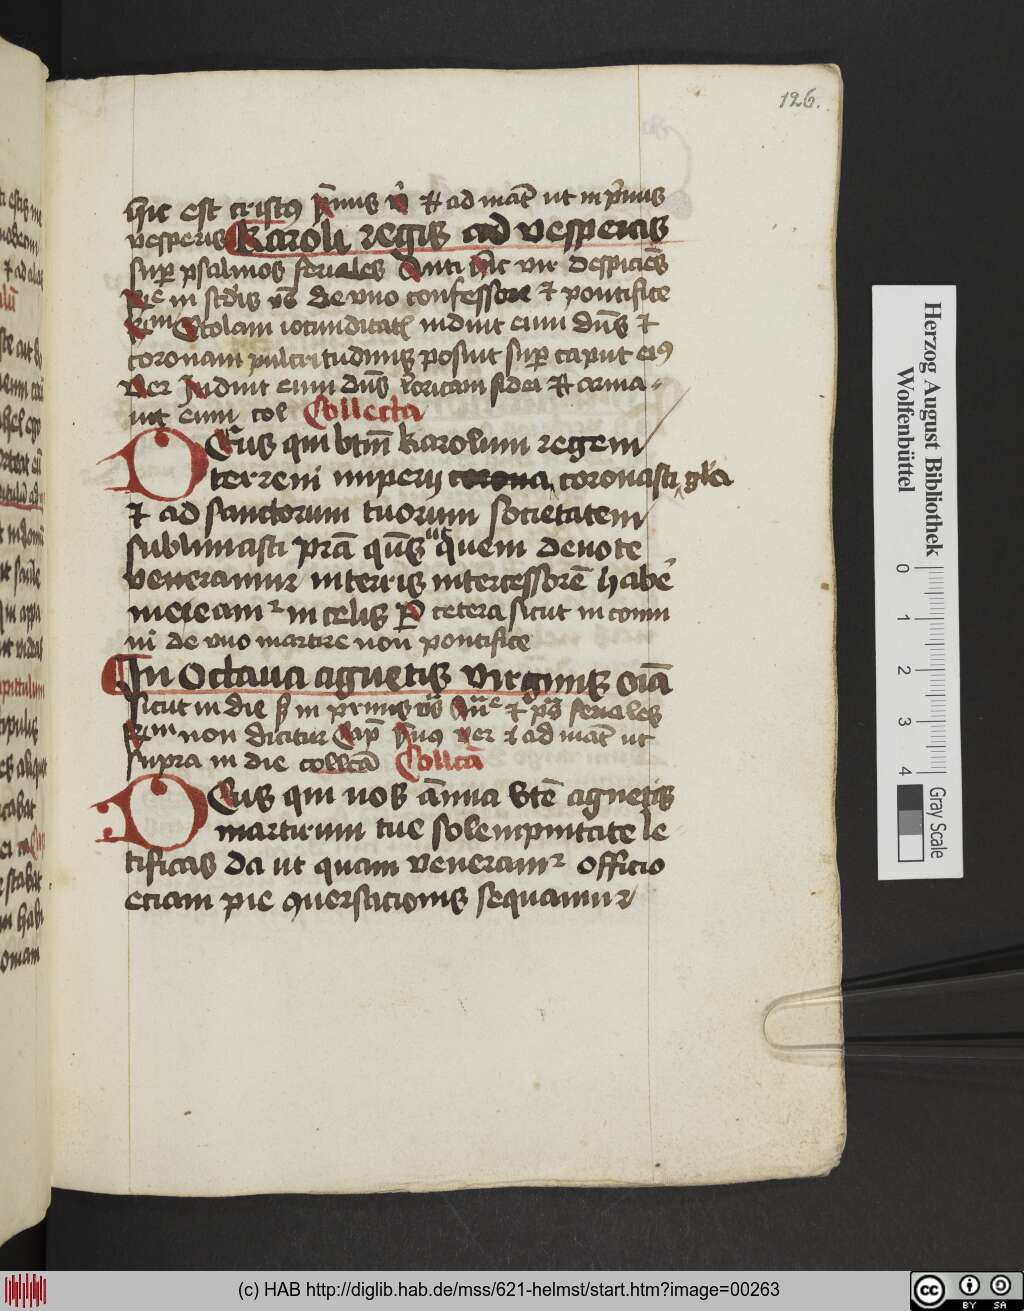 126.
hic est cristꝰ p̄mus v̉ Et ad mat̄ ut in p̄mis
vesperis Karoli regis ad vesperas
sup̱ psalmos feriales Anti hic vir despiciēs
in de vno confessore et pontifice
Stolam iocunditatis induit eum dn̄s et
coronam pulcritudinis posuit sup̱ caput eiꝰ
ver Induit eum dn̄s loricam fidei Et arma-
uit eum col Collecta
Deus qui btm̄ karolum regem
terreni imperij corona coronasti gl̄ia
et ad sanctorum tuorum societatem
sublimasti prā qs̄ ut quem deuote
veneramur in terris intercessorē habē
mereamᷣ in celis P cetera sicut in comu
ni de vno martire non pontifice
In Octaua agnetis virginis oīa
sicut in die in primis et feriales
non dicitur Cap̄ ver et ad mat̄ ut
supra in die collcā Collcā
Deus qui nos ānua bt̄e agnetis
martirum tue solempnitate le
tificas da ut quam veneramᷣ officio
etiam pie ꝯuersacionis sequamur
Herzog August Bibliothek
Wolfenbüttel
0 1 2 3 4
Gray Scale
(c) HAB http://diglib.hab.de/mss/621-helmst/start.htm?image=00263
cc BY SA